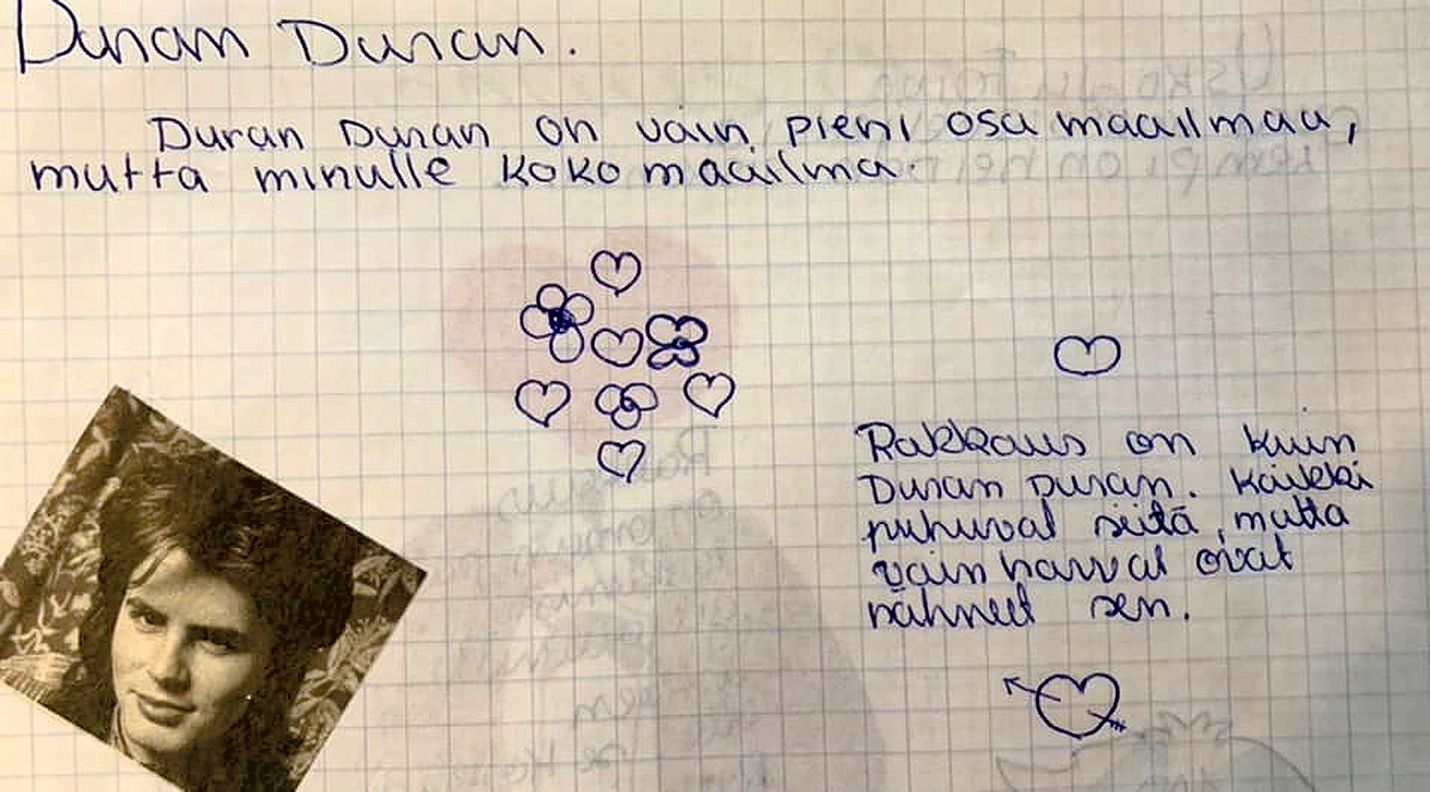 Duran Duran.
Duran Duran on vain pieni osa maailmaa,
mutta minulle koko maailma.
Rakkaus on kuin
Duran Duran. Kaikki
puhuvat siitä, mutta
vain harvat ovat
nähneet sen.